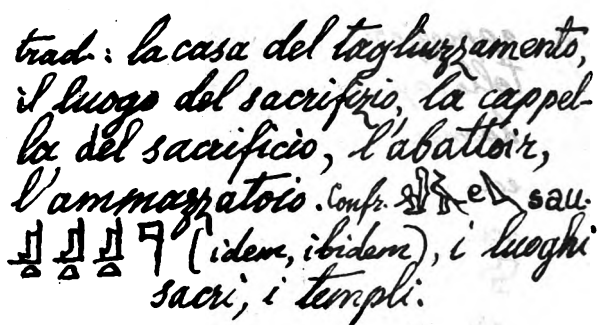 trad.: la casa del tagliuzzamento,
il luogo del sacrifizio, la cappel-
la del sacrificio, l'abattoir,
l'ammazzatoio. Confr. sau.
(idem, ibidem), i luoghi
sacri, i templi.